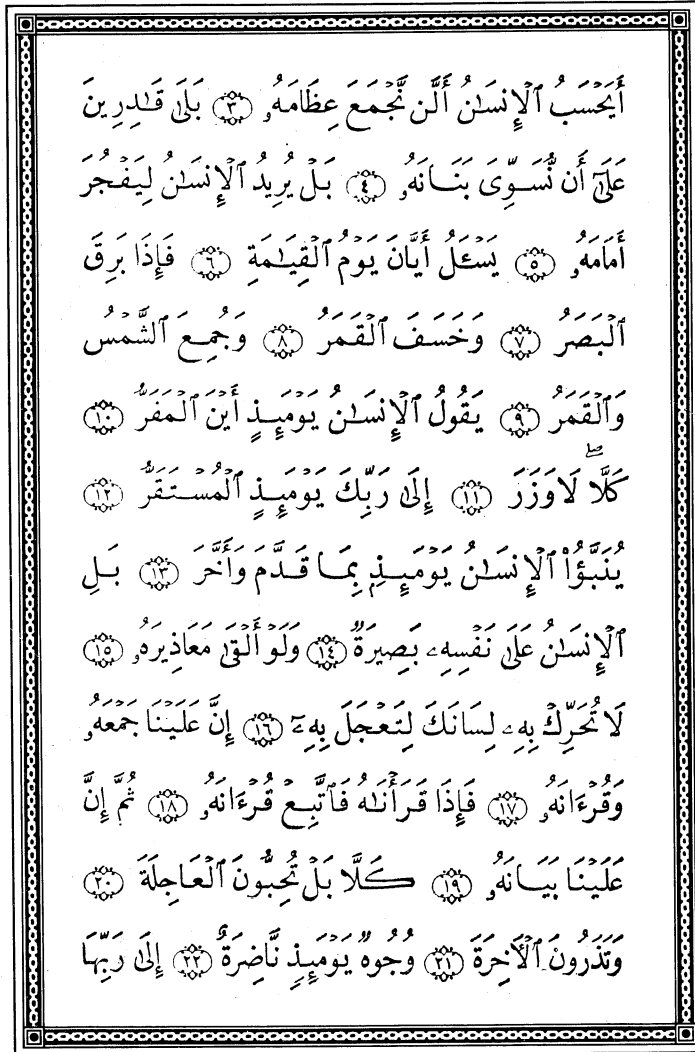 أَيَحْسَبُ ٱلْإِنسَـٰنُ أَلَّن نَّجْمَعَ عِظَامَهُۥ ٣ بَلَىٰ قَـٰدِرِينَ
عَلَىٰٓ أَن نُّسَوِّىَ بَنَانَهُۥ ٤ بَلْ يُرِيدُ ٱلْإِنسَـٰنُ لِيَفْجُرَ
أَمَامَهُۥ ٥ يَسْـَٔلُ أَيَّانَ يَوْمُ ٱلْقِيَـٰمَةِ ٦ فَإِذَا بَرِقَ
ٱلْبَصَرُ ٧ وَخَسَفَ ٱلْقَمَرُ ٨ وَجُمِعَ ٱلشَّمْسُ
وَٱلْقَمَرُ ٩ يَقُولُ ٱلْإِنسَـٰنُ يَوْمَئِذٍ أَيْنَ ٱلْمَفَرُّ ١٠
كَلَّا لَا وَزَرَ ١١ إِلَىٰ رَبِّكَ يَوْمَئِذٍ ٱلْمُسْتَقَرُّ ١٢
يُنَبَّؤُا۟ ٱلْإِنسَـٰنُ يَوْمَئِذٍۭ بِمَا قَدَّمَ وَأَخَّرَ ١٣ بَلِ
ٱلْإِنسَـٰنُ عَلَىٰ نَفْسِهِۦ بَصِيرَةٌ ١٤ وَلَوْ أَلْقَىٰ مَعَاذِيرَهُۥ ١٥
لَا تُحَرِّكْ بِهِۦ لِسَانَكَ لِتَعْجَلَ بِهِۦٓ ١٦ إِنَّ عَلَيْنَا جَمْعَهُۥ
وَقُرْءَانَهُۥ ١٧ فَإِذَا قَرَأْنَـٰهُ فَٱتَّبِعْ قُرْءَانَهُۥ ١٨ ثُمَّ إِنَّ
عَلَيْنَا بَيَانَهُۥ ١٩ كَلَّا بَلْ تُحِبُّونَ ٱلْعَاجِلَةَ ٢٠
وَتَذَرُونَ ٱلْـَٔاخِرَةَ ٢١ وُجُوهٌ يَوْمَئِذٍ نَّاضِرَةٌ ٢٢ إِلَىٰ رَبِّهَا